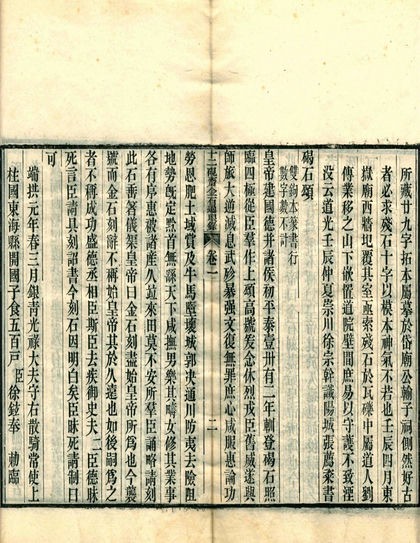 所藏廿九字拓本屬摹於岱廟公輸子洞側然好古
者必求殘石十字以模本神氣不若也壬辰四月東
嶽廟西牆圮覆其室亟索殘石於瓦礫中屬道人劉
傳業移之山下嵌置道院壁間庶易以守護不致湮
没云道光壬辰仲夏崇川徐宗幹識陽城張薦粢書
碣石頌
雙鉤本篆書行
數字數不計
皇帝建國德并諸侯初平泰壹卅有二年登碣石照
臨四極從臣羣作上頌高號爰念休烈戎臣奮威遂興
師旅大逆滅息武殄暴强文復無罪庶心咸服惠論功
十二硯齋金石過眼錄 卷一 二
勞恩肥土域賞及牛馬墮壞城郭決通川防夷去險阻
地勢旣定黔首無繇天下咸撫男樂其疇女修其業事
各有序惠被諸產久竝來田莫不安所羣臣誦略請刻
此石垂著儀矩皇帝曰金石刻盡始皇帝所爲也今襲
號而金石刻辭不稱始皇帝其於久遠也如後嗣爲之
者不稱成功盛德丞相臣斯臣去疾御史夫二臣德昧
死言臣請具刻詔書今刻石因明白矣臣昧死請制曰
可
端拱元年春三月銀青光祿大夫守右散騎常侍上
柱國東海縣開國子食五百戶 臣 徐鉉奉 勅臨